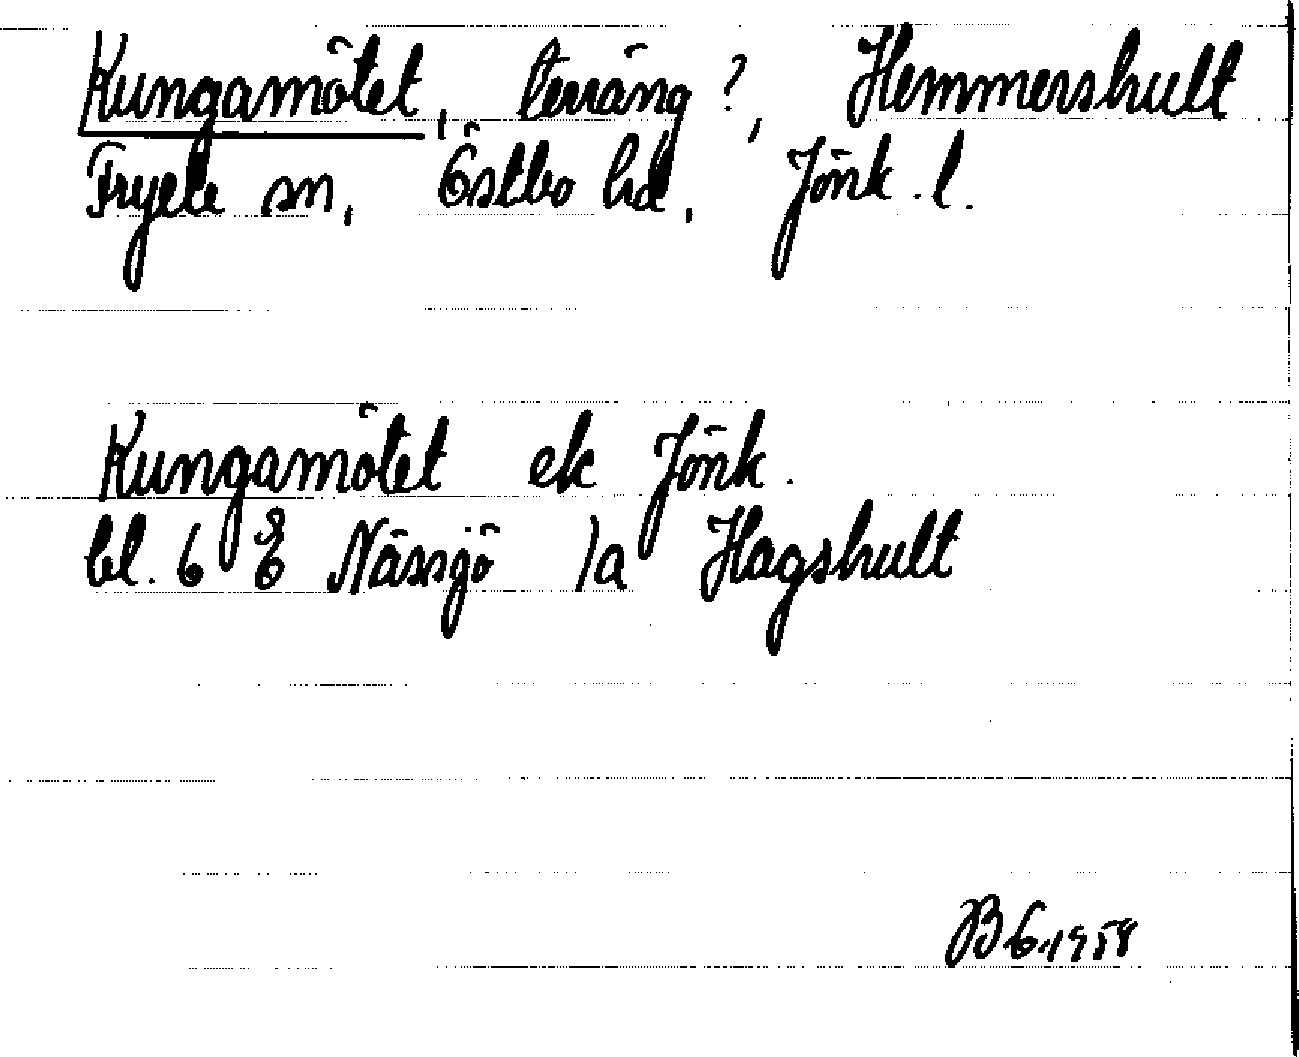 Kungamötet, terräng?, Hemmershult
Fryele sn, Östbo hd, Jönk.l.
Kungamötet ek Jönk.
bl. 6 E Nässjö 1a Hagshult
B E 1958